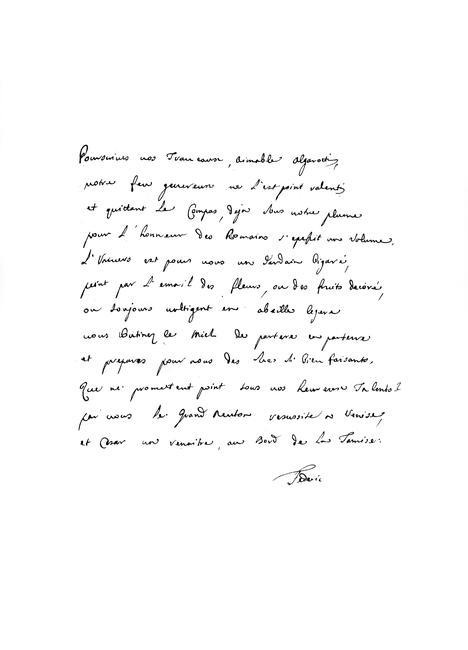 Poursuives vos Traveause, aimable Algaroti,
votre feu genereuse ne s'est point ralenti,
et quittant le Compas, deja sous votre plume
pour l'honneur des Romains s'epessit un Volume.
L'Univers est pour vous un Jardain Bigaré,
peint par l'email des fleurs, ou des fruits decoré,
ou toujours voltigent en abeille legere
vous Butinez le Miel de parterre en parterre
et prepares pour nous des sucs si bien faisants.
Que ne promettent point tous vos heureuse Talents?
par vous le Grand Neuton resussite a Venise,
et Cesar va renaitre, au Bord de la Tamise.
Federic